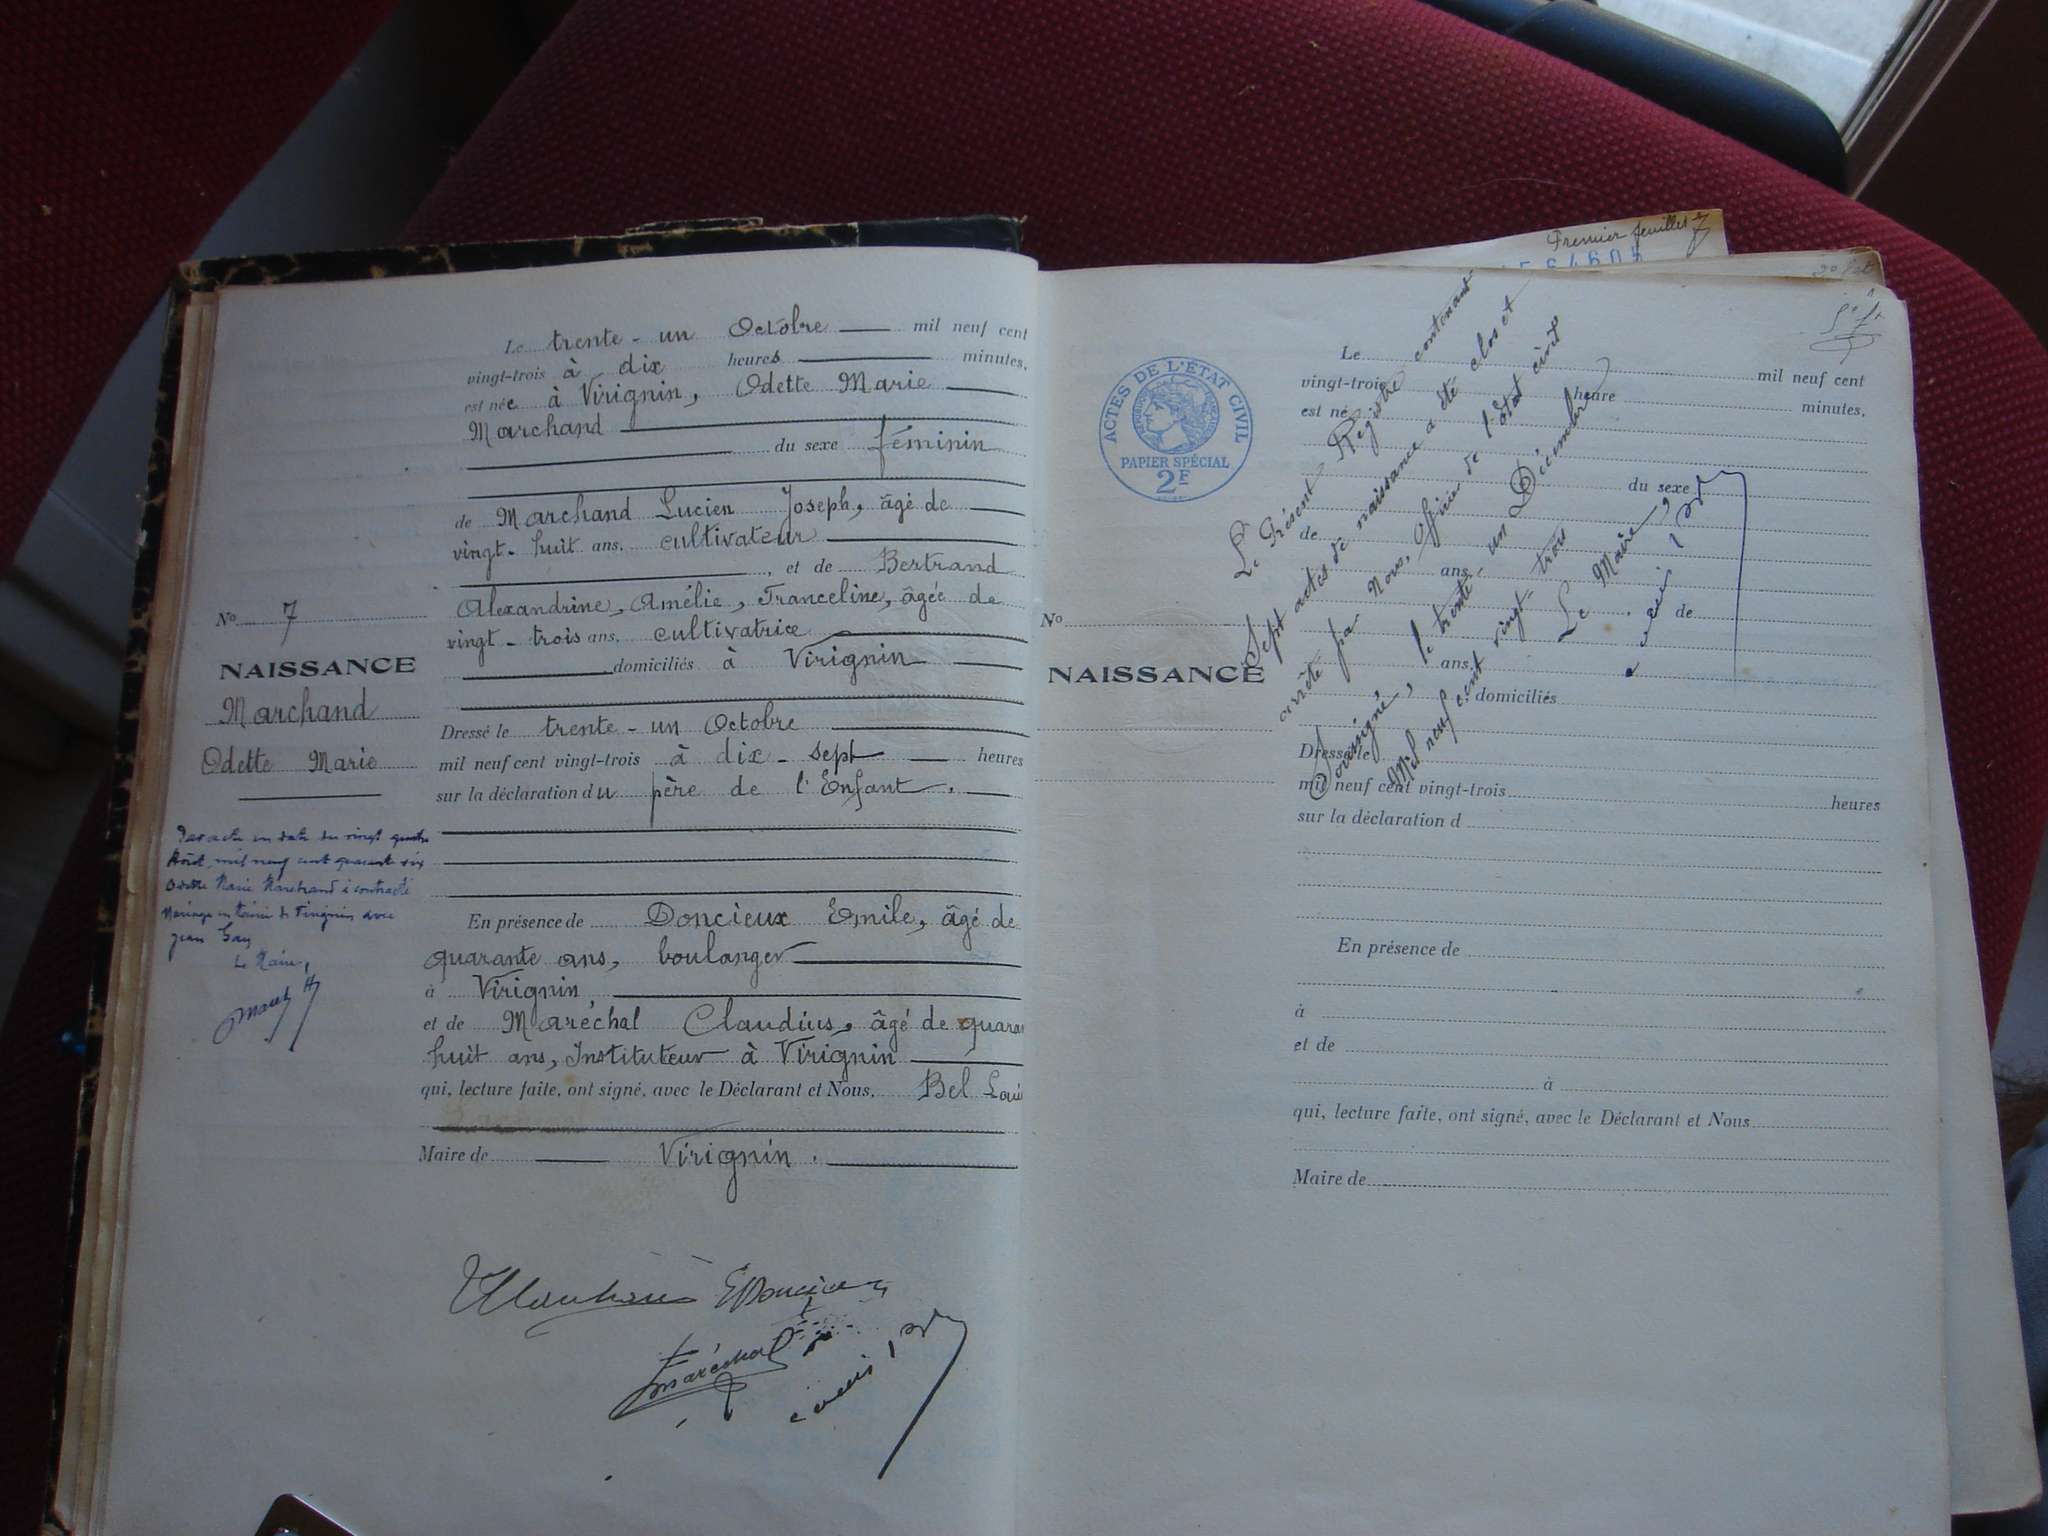 Le trente-un Octobre mil neuf cent
vingt-trois à dix heures minutes,
est née à Virignin, Odette Marie
Marchand
du sexe féminin
de Marchand Lucien Joseph, âgé de
vingt-huit ans, cultivateur
, et de Bertrand
Alexandrine, Amélie, Franceline, âgée de
vingt-trois ans, cultivatrice
domiciliés à Virignin
Dressé le trente-un Octobre
mil neuf cent vingt-trois à dix-sept heures
sur la déclaration du père de l'Enfant.
En présence de Doncieux Emile, âgé de
quarante ans, boulanger
à Virignin
et de Maréchal Claudius, âgé de
huit ans, Instituteur à Virignin
qui, lecture faite, ont signé, avec le Déclarant et Nous, Bel
Maire de Virignin.
EDoncieux
Maréchal
No 7
NAISSANCE
Marchand
Odette Marie
Par acte en date du vingt quatre
Août mil neuf cent quarante six
Odette Marie Marchand a contracté
Mariage en Mairie de Virignin avec
Jean Gay
Le Maire,
Premier feuillet
ACTES DE L'ÉTAT CIVIL
PAPIER SPÉCIAL
2F
No
NAISSANCE
Le mil neuf cent
vingt-trois heure
est né minutes,
du sexe
de
ans,
de
ans,
domiciliés
Dressé le
mil neuf cent vingt-trois heures
sur la déclaration d
En présence de
à
et de
à
qui, lecture faite, ont signé, avec le Déclarant et Nous
Maire de
Le Présent Registre contenant
Sept actes de naissance a été clos et
arrêté par Nous, Officier de l'état civil
Soussigné, le trente-un Décembre
Mil neuf cent vingt-trois
Le Maire,